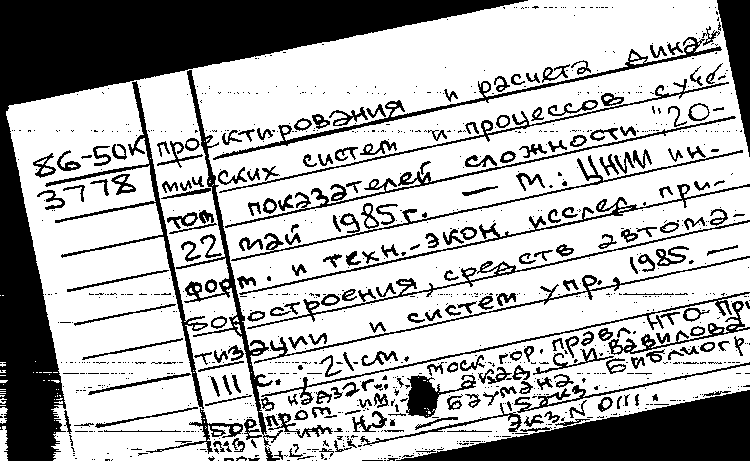 86-50К проектирования и расчета дина-
3778 мических систем и процессов с уче-
том показателей сложности "20-
22 май 1985г. — М.: ЦНИИ ин-
форм. и техн.-экон. исслед. при-
боростроения, средств автома-
тизации и систем упр., 1985. —
111 с. ; 21 см.
В надзаг.: Моск. гор. правл. НТО При-
борпром им. акад. С.И. Вавилова
МВТУ им. Н.Э. Баумана. Библиогр.
115 экз.
Экз. N 0111.